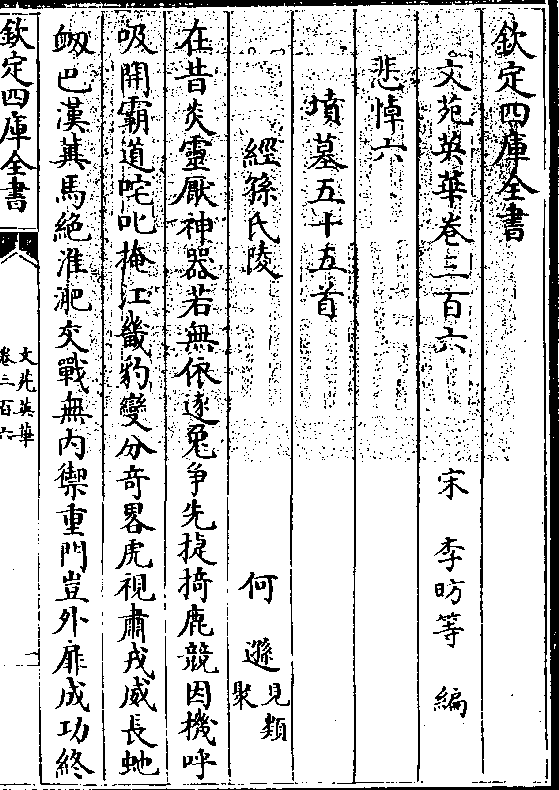 欽定四庫全書
文苑英華卷三百六
宋 李昉等 編
悲悼六
墳墓五十五首
經孫氏陵
何 遜見類聚
在昔炎靈厭神器若無依逐兔争先捷掎鹿競因機呼
吸開霸道咤叱掩江畿豹變分奇畧虎視肅戎威長虵
衂巴漢驥馬絶淮淝交戰無内禦重門豈外扉成功終
欽定四庫全書
文苑英華
卷三百六
一